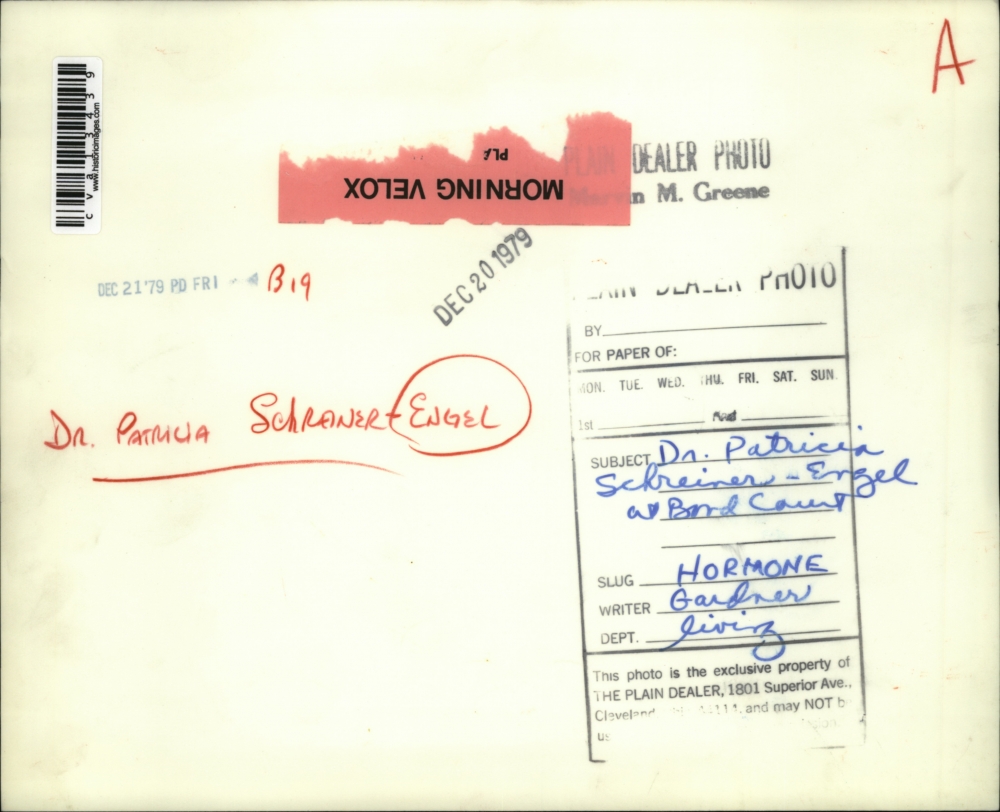 A
cva13439
www.historicimages.com
PLA
MORNING VELOX
PLAIN DEALER PHOTO
Marvin M. Greene
DEC 20 1979
DEC 21 '79 PD FRI
B19
DR. PATRICIA SCHREINER-ENGEL
PLAIN DEALER PHOTO
BY
FOR PAPER OF:
MON. TUE. WED. THU. FRI. SAT. SUN.
1st
SUBJECT Dr. Patricia
Schreiner-Engel
at Bond Court
SLUG HORMONE
WRITER Gardner
DEPT. living
This photo is the exclusive property of
THE PLAIN DEALER, 1801 Superior Ave.,
Cleveland 44114, and may NOT b
us